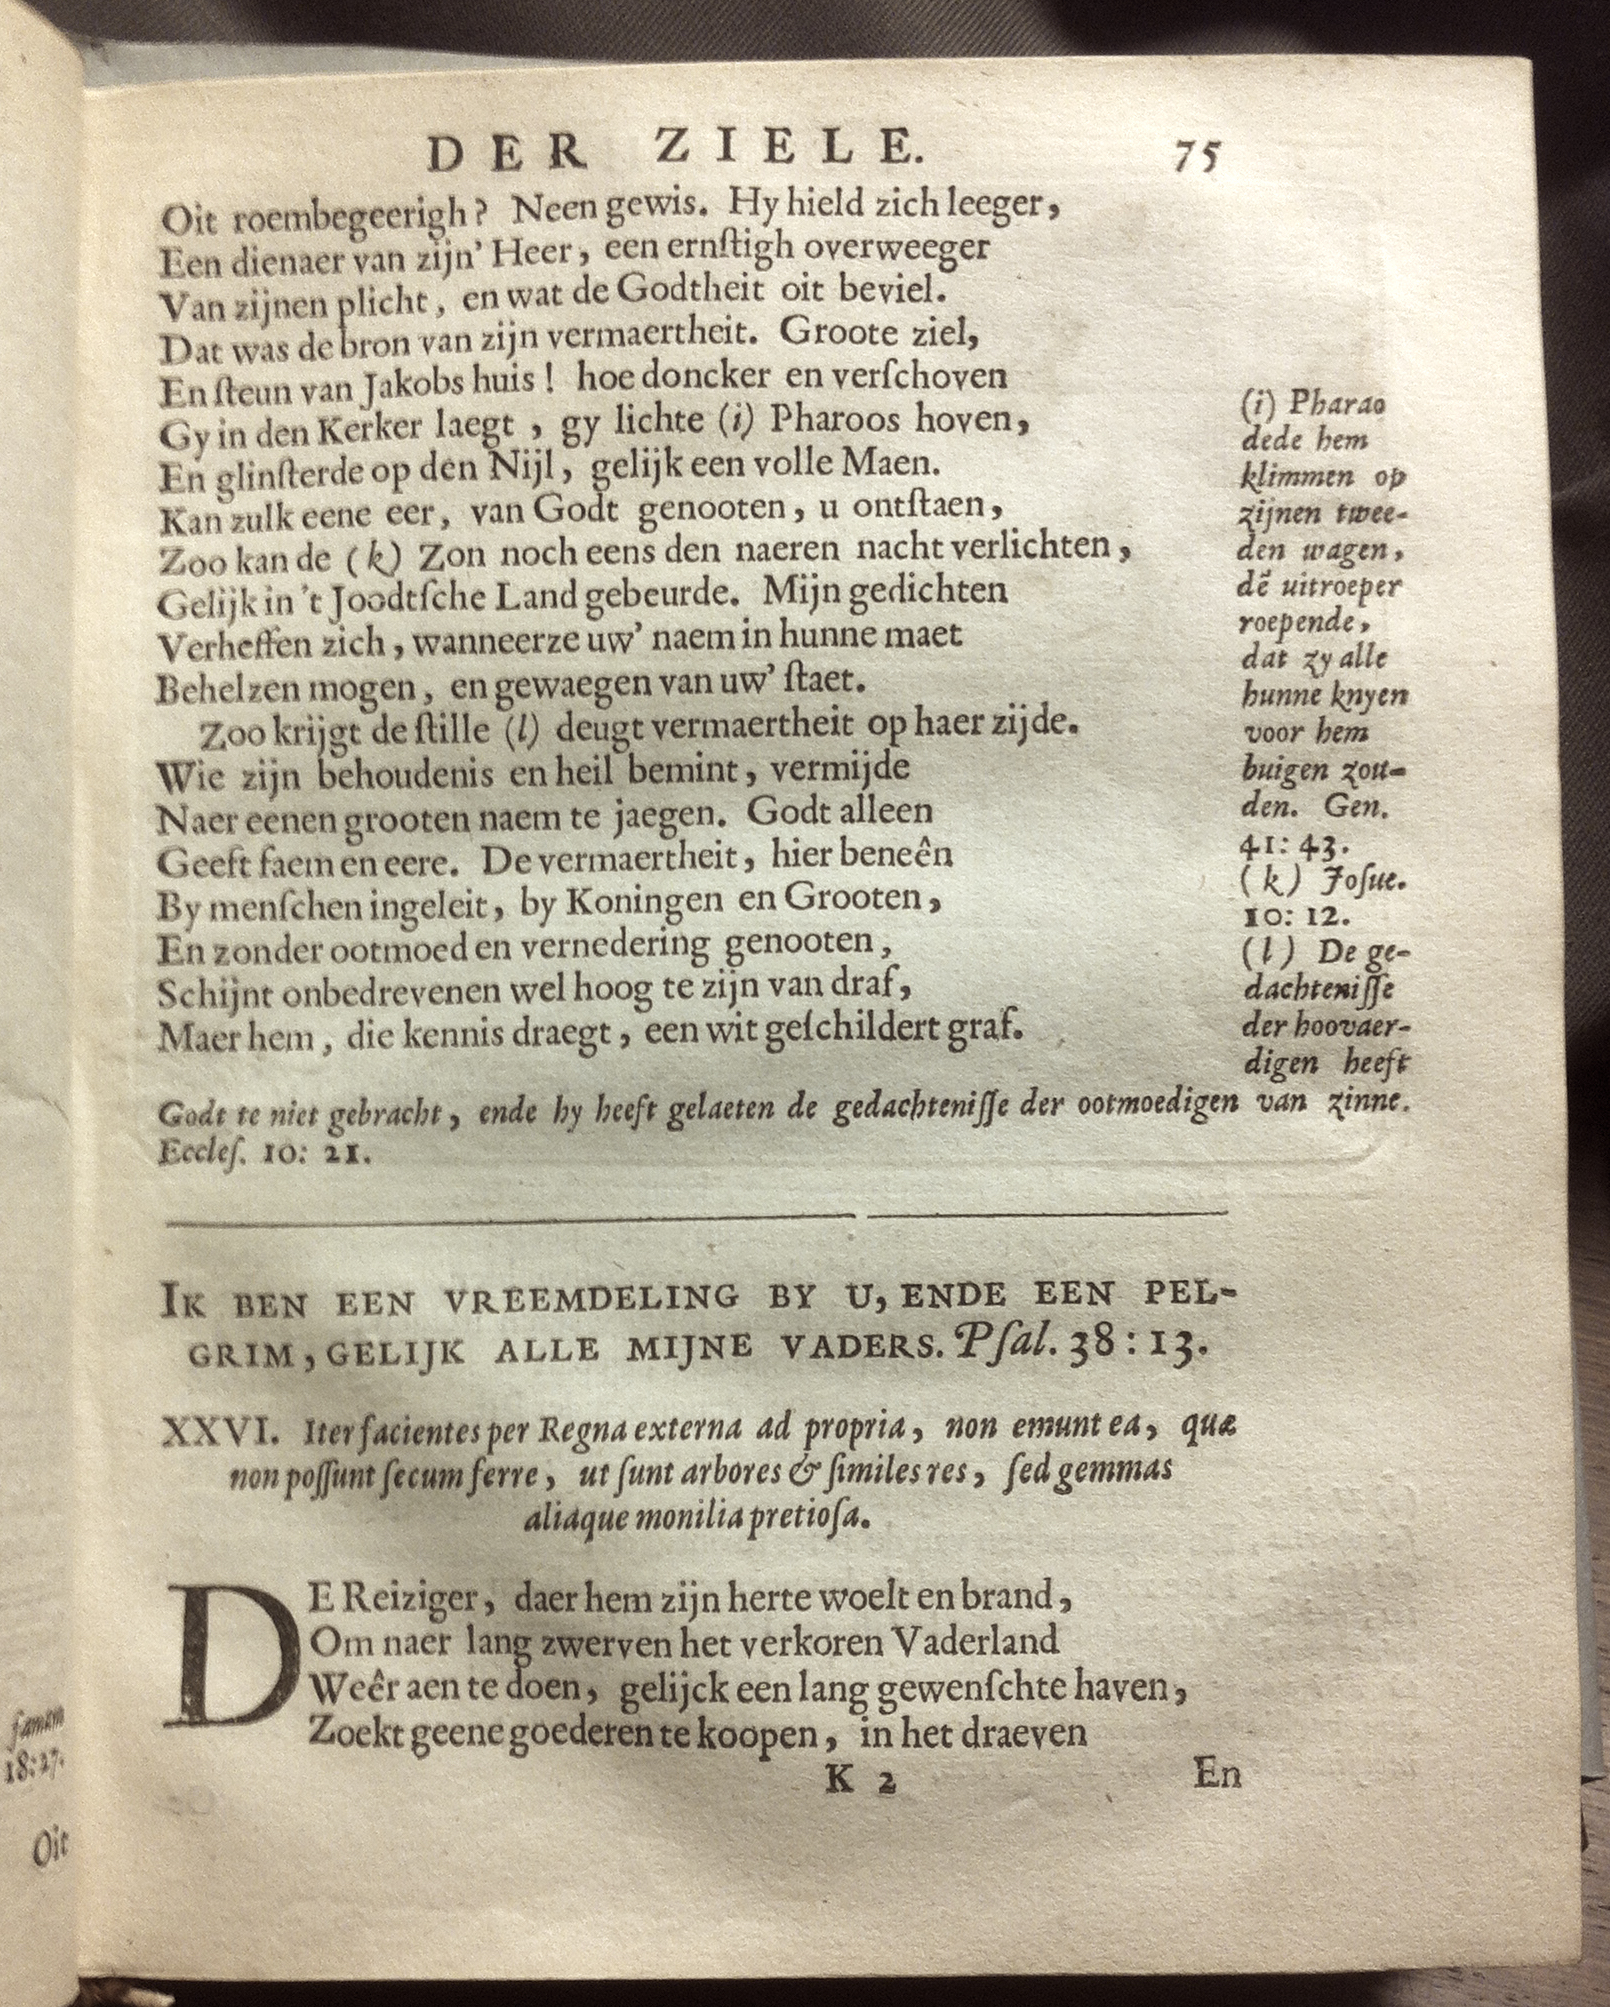 DER ZIELE. 75
Oit roembegeerigh? Neen gewis. Hy hield zich leeger,
Een dienaer van zijn' Heer, een ernſtigh overweeger
Van zijnen plicht, en wat de Godtheit oit beviel.
Dat was de bron van zijn vermaertheit. Groote ziel,
En ſteun van Jakobs huis! hoe doncker en verſchoven
Gy in den Kerker laegt, gy lichte (i) Pharoos hoven,
En glinſterde op den Nijl, gelijk een volle Maen.
Kan zulk eene eer, van Godt genooten, u ontſtaen,
Zoo kan de (k) Zon noch eens den naeren nacht verlichten,
Gelijk in 't Joodtſche Land gebeurde. Mijn gedichten
Verheffen zich, wanneerze uw' naem in hunne maet
Behelzen mogen, en gewaegen van uw' ſtaet.
Zoo krijgt de ſtille (l) deugt vermaertheit op haer zijde.
Wie zijn behoudenis en heil bemint, vermijde
Naer eenen grooten naem te jaegen. Godt alleen
Geeft faem en eere. De vermaertheit, hier beneên
By menſchen ingeleit, by Koningen en Grooten,
En zonder ootmoed en vernedering genooten,
Schijnt onbedrevenen wel hoog te zijn van draf,
Maer hem, die kennis draegt, een wit geſchildert graf.
(i) Pharao
dede hem
klimmen op
zijnen twee-
den wagen,
dẽ uitroeper
roepende,
dat zy alle
hunne knyen
voor hem
buigen zou-
den. Gen.
41: 43.
(k) Joſue.
10: 12.
(l) De ge-
dachteniſſe
der hoovaer-
digen heeft
Godt te niet gebracht, ende hy heeft gelaeten de gedachteniſſe der ootmoedigen van zinne.
Eccleſ. 10: 21.
IK BEN EEN VREEMDELING BY U, ENDE EEN PEL-
GRIM, GELIJK ALLE MIJNE VADERS. Pſal. 38: 13.
XXVI. Iter facientes per Regna externa ad propria, non emunt ea, quæ
non poſſunt ſecum ferre, ut ſunt arbores & ſimiles res, ſed gemmas
aliaque monilia pretioſa.
DE Reiziger, daer hem zijn herte woelt en brand,
Om naer lang zwerven het verkoren Vaderland
Weêr aen te doen, gelijck een lang gewenſchte haven,
Zoekt geene goederen te koopen, in het draeven
K 2 En
ſamem
18:27.
Oit